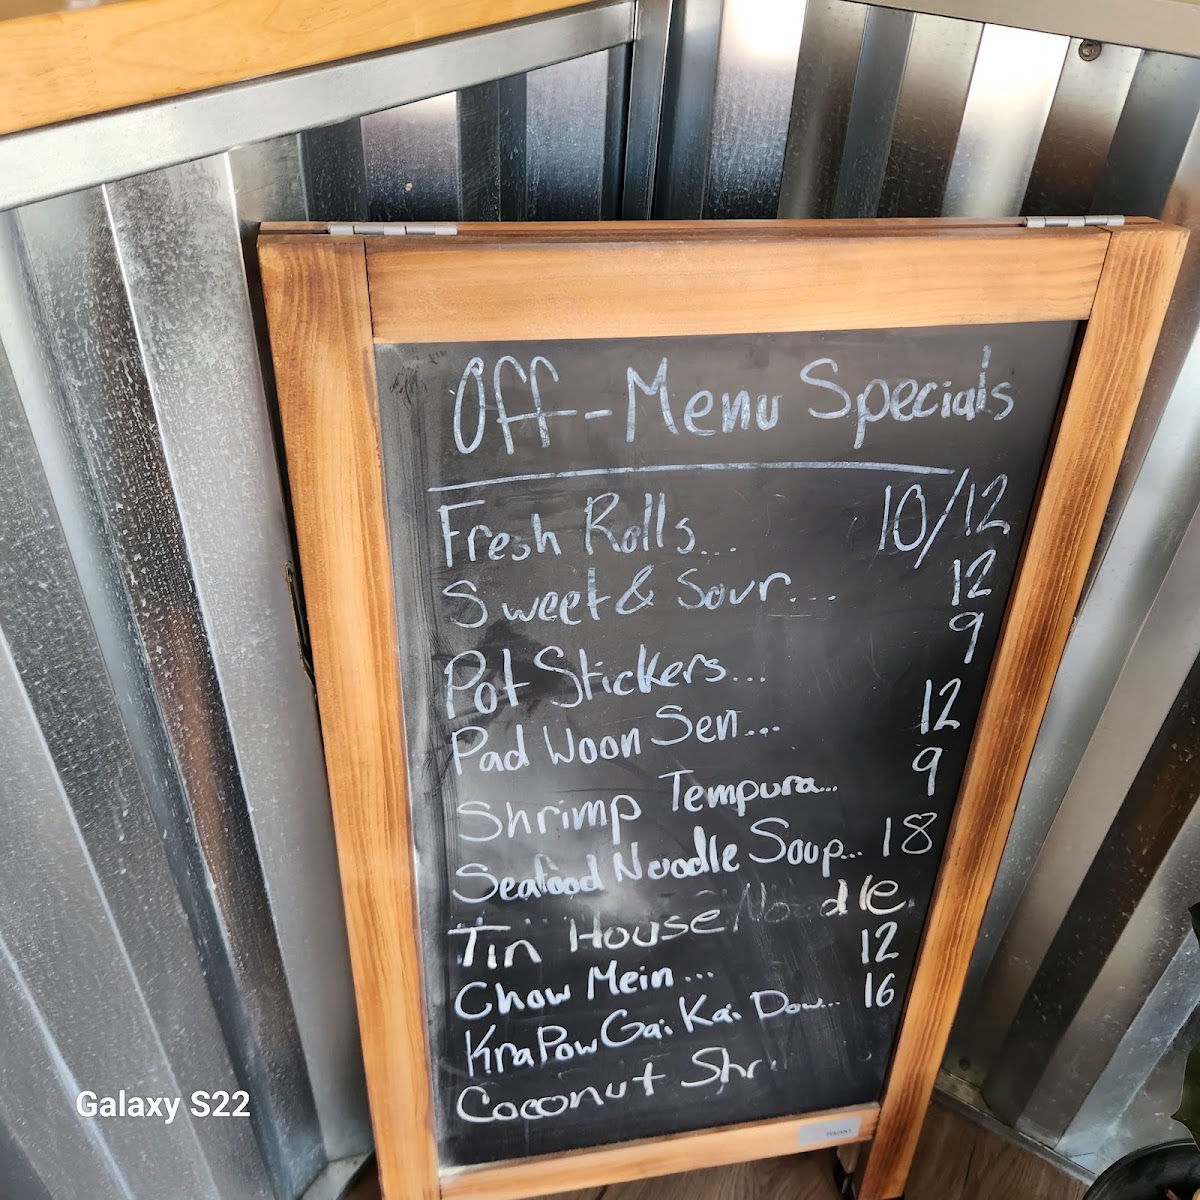 Off-Menu Specials
Fresh Rolls... 10/12
Sweet & Sour... 12
Pot Stickers... 9
Pad Woon Sen... 12
Shrimp Tempura... 9
Seafood Noodle Soup... 18
Tin House Noodle
Chow Mein... 12
Kra Pow Gai Kai Dow... 16
Coconut
Galaxy S22